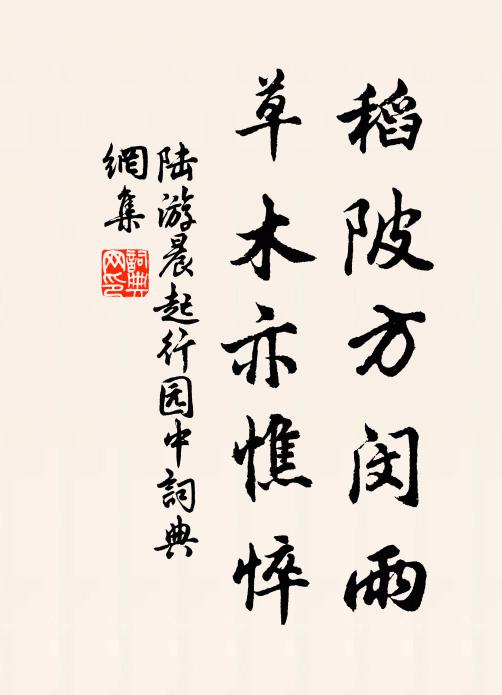 稻陂方闵雨
草木亦憔悴
陆游晨起行园中詞典
網集
詞典
网印